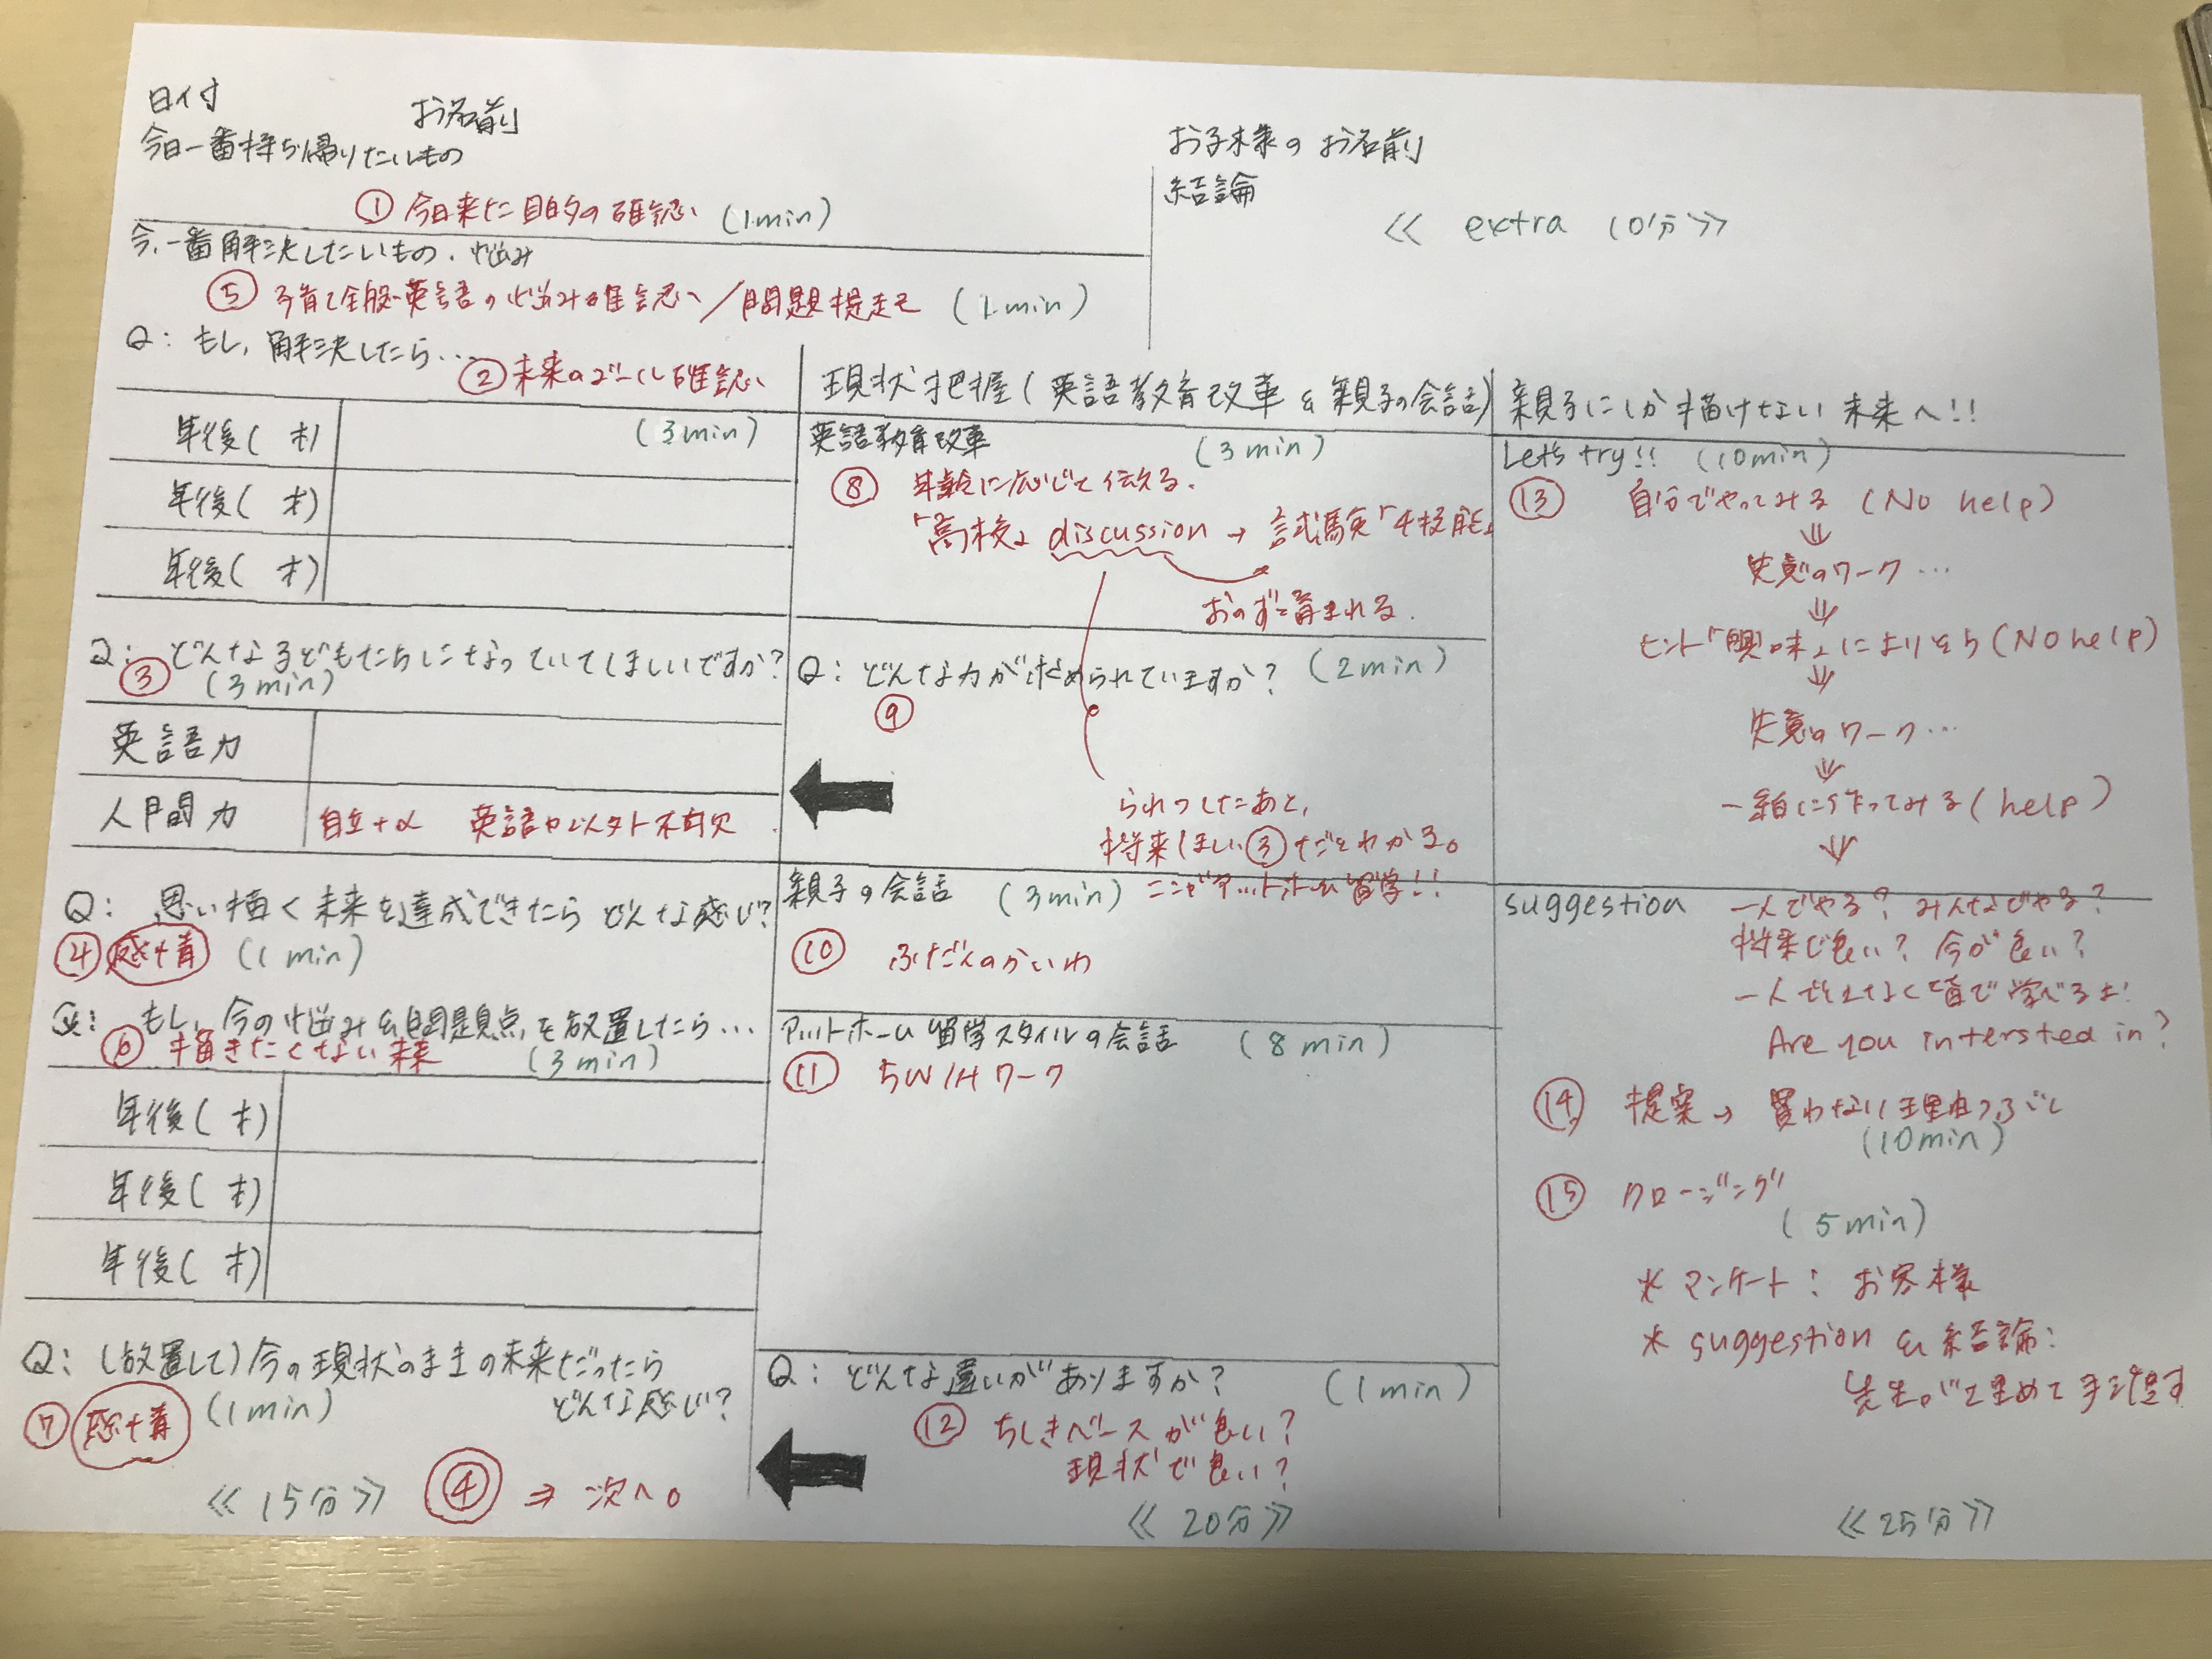 日付
お名前
今日一番持ち帰りたいもの
① 今日来た目的の確認 (1min)
今、一番解決したいもの・悩み
⑤ 子育て全般・英語の悩み確認へ/問題提起 (1min)
Q: もし、解決したら…
② 未来のゴール確認
年後( 才) (3min)
年後( 才)
年後( 才)
Q: どんな子どもたちになっていてしほしいですか?
③ (3min)
英語力
人間力 自立+α 英語力以外不可欠
Q: 思い描く未来を達成できたらどんな感じ?
④ 感情 (1min)
Q: もし、今の悩み&問題点を放置したら…
⑥ 描きたくない未来 (3min)
年後( 才)
年後( 才)
年後( 才)
Q: (放置して)今の現状のままの未来だったら
どんな感じ?
⑦ 感情 (1min)
≪15分≫ ④ ⇒ 次へ。
お子様の お名前
結論
≪ extra 10分≫
現状把握(英語教育改革&親子の会話)
英語教育改革 (3min)
⑧ 年齢に応じて伝える.
「高校」discussion → 試験「4技能」
おのずと育まれる.
Q: どんな力が求められていますか? (2min)
⑨
したあと,
将来ほしい③だとわかる。
親子の会話 (3min) ここがアットホーム留学!!
⑩ ふだんのかいわ
アットホーム留学スタイルの会話 (8min)
⑪ 5W1Hワーク
Q: どんな違いがありますか? (1min)
⑫ ちしきベースが良い?
現状で良い?
≪20分≫
親子にしか描けない未来へ!!
Let's try!! (10min)
⑬ 自分でやってみる (No help)
⇓
失意のワーク…
⇓
ヒント「興味」によりそう(No help)
⇓
失意のワーク…
⇓
一緒に作ってみる(help)
⇓
suggestion 一人でやる? みんなでやる?
将来で良い? 今が良い?
一人でなく皆で学べるよ!
Are you intersted in?
⑭ 提案→ 買わない理由つぶし
(10min)
⑮ クロージング
(5min)
* アンケート: お客様
* suggestion & 結論:
先生が埋めて手渡す
≪25分≫